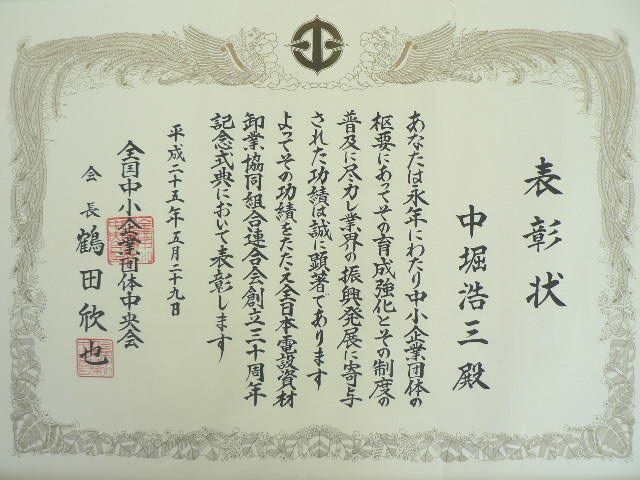 表彰状
中堀浩三殿
あなたは永年にわたり中小企業団体の
枢要にあってその育成強化とその制度の
普及に尽力し業界の振興発展に寄与
された功績は誠に顕著であります
よってその功績をたたえ全日本電設資材
卸業協同組合連合会創立三十周年
記念式典において表彰します
平成二十五年五月二十九日
全国中小企業団体中央会
会長 鶴田欣也